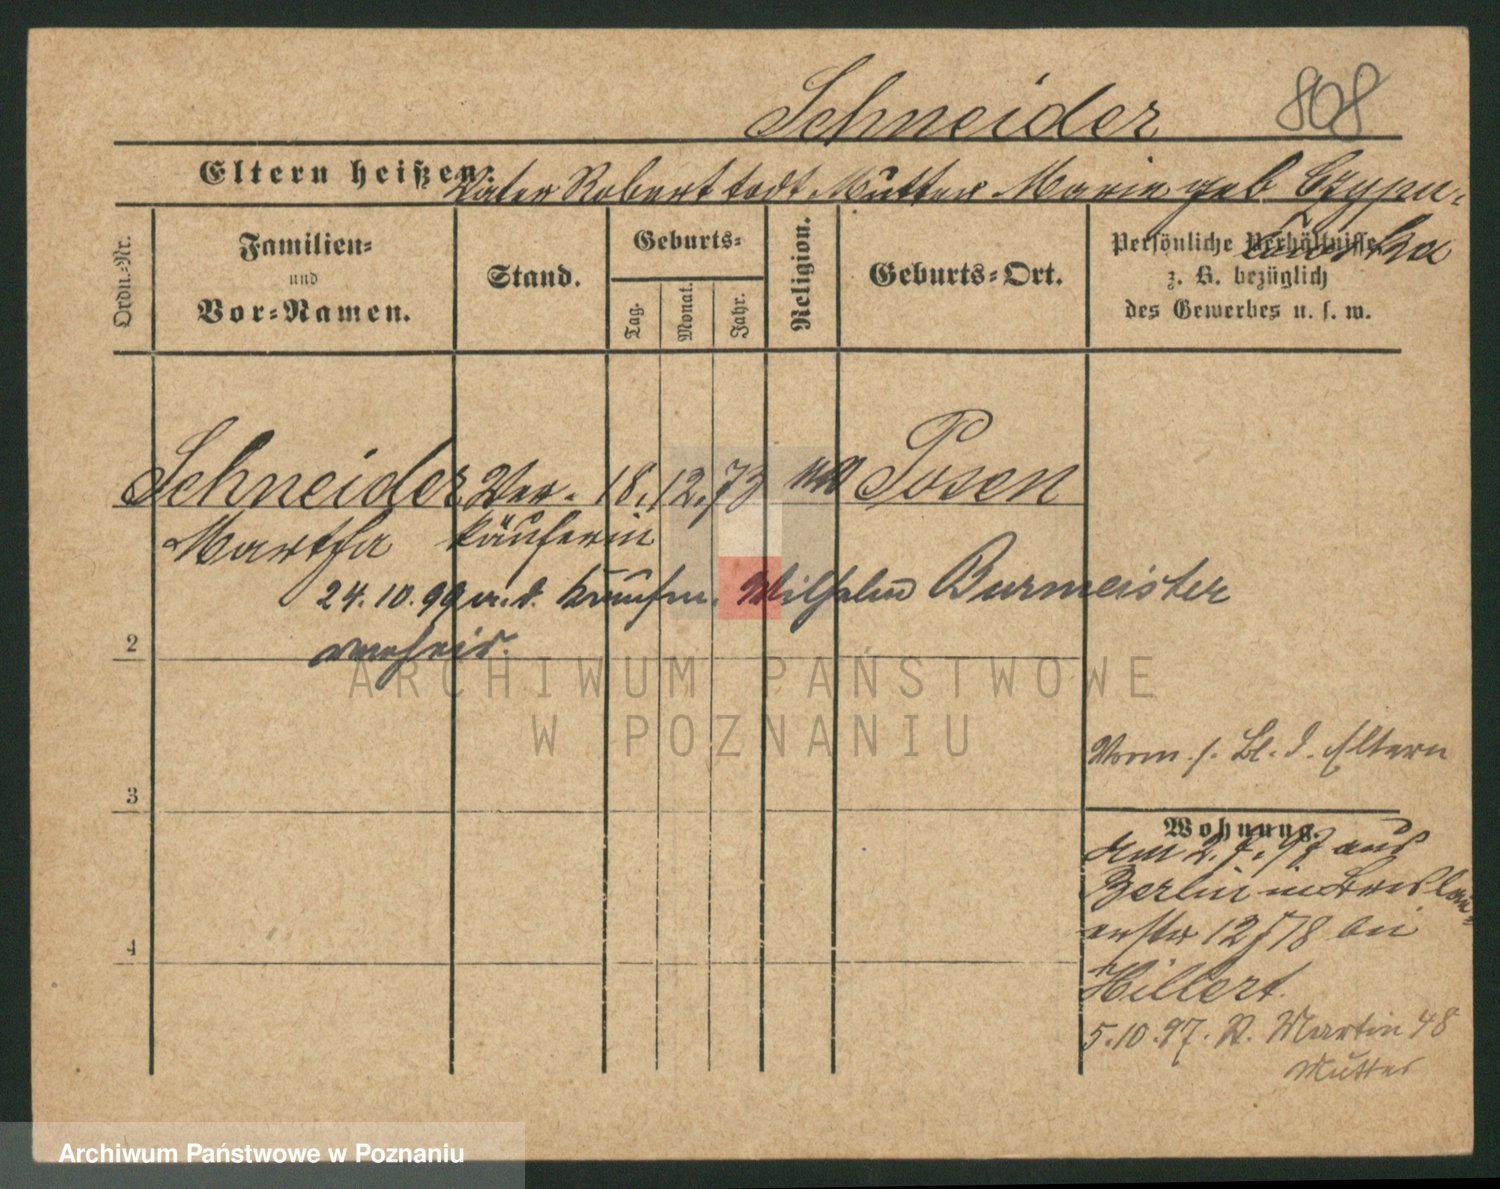 Schneider 808
Eltern heißen: Vater Robert todt Mutter Marie geb Czypu-
Ordn.-Nr.
Familien-
und
Vor-Namen.
Stand.
Geburts-
Tag.
Monat.
Jahr.
Religion.
Geburts-Ort.
Persönliche Verhältnisse
z. B. bezüglich
des Gewerbes u. s. w.
Schneider Ver- 18. 12. 73 Posen
Martha käuferin
24.10.99 m. d. Kaufm. Wilhelm Burmeister
verheir.
2
3
4
Vorm. s. Bl. d. Eltern
Wohnung.
am 2. 7. 97 aus
Berlin in Breslau-
erstr 12/78 bei
Hillert.
5.10.97. St. Martin 48
Mutter
ARCHIWUM PAŃSTWOWE
W POZNANIU
Archiwum Państwowe w Poznaniu